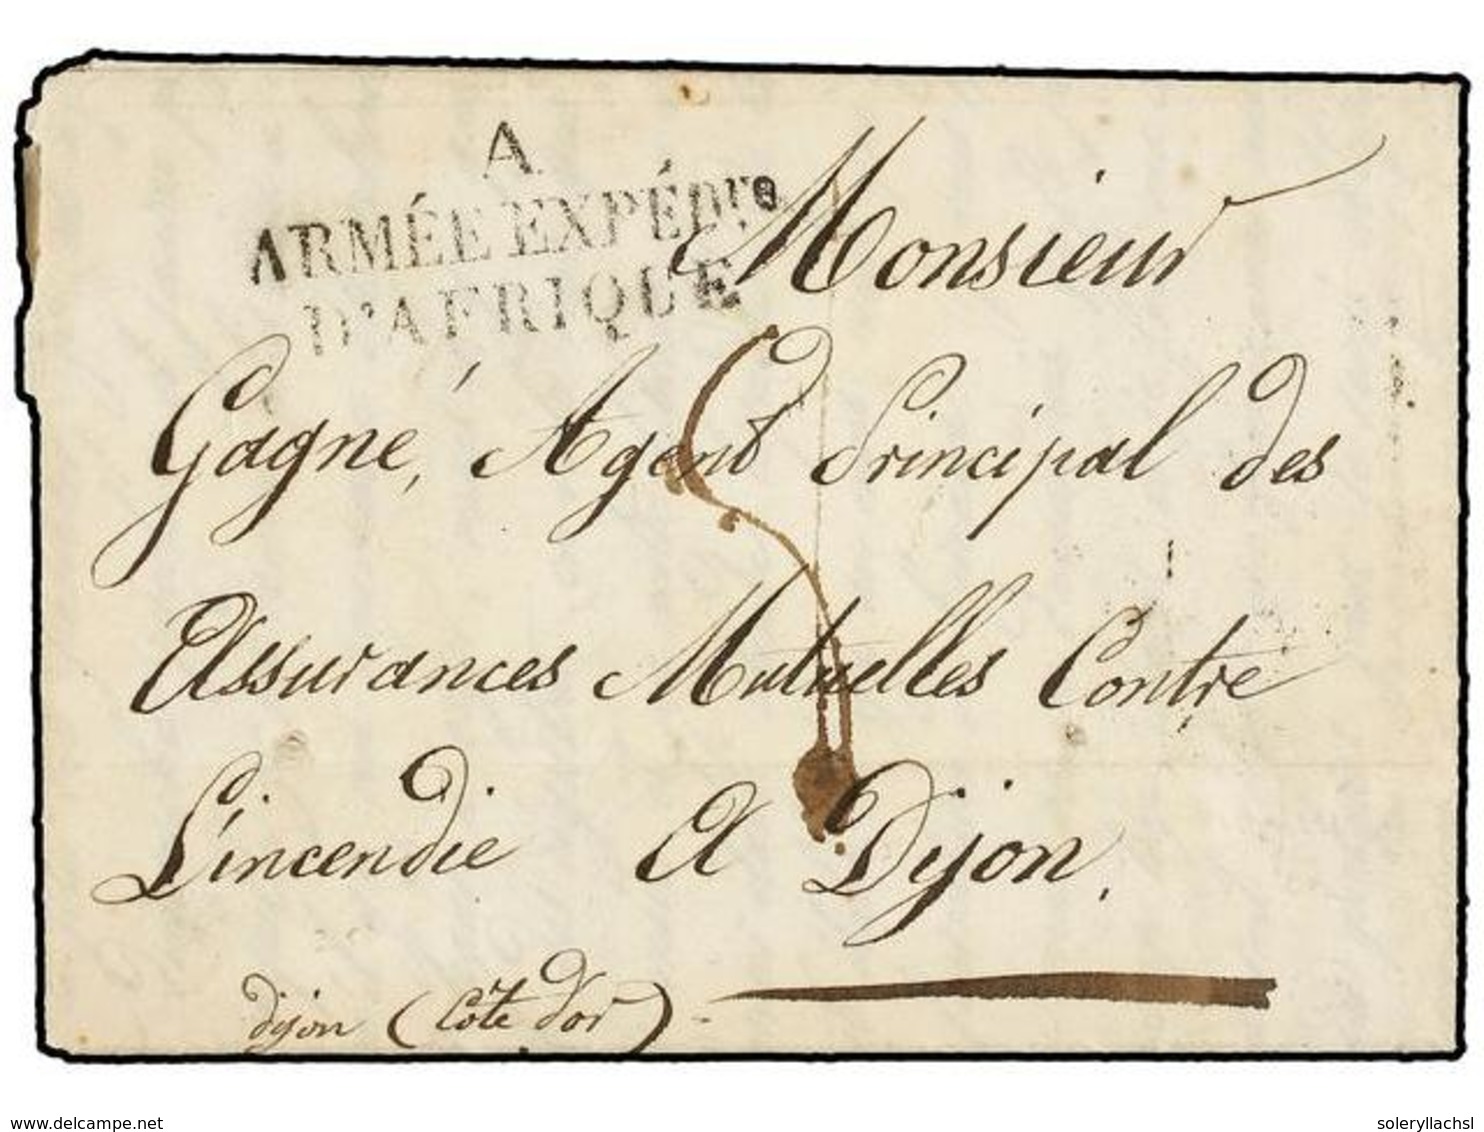 A
ARMÉE EXPÉDre
D'AFRIQUE
Monsieur
Gagné, Agent Principal des
Assurances Mutuelles Contre
L'incendie A Dijon,
dijon (Côte d'or)
www.delcampe.net
soleryllachsl